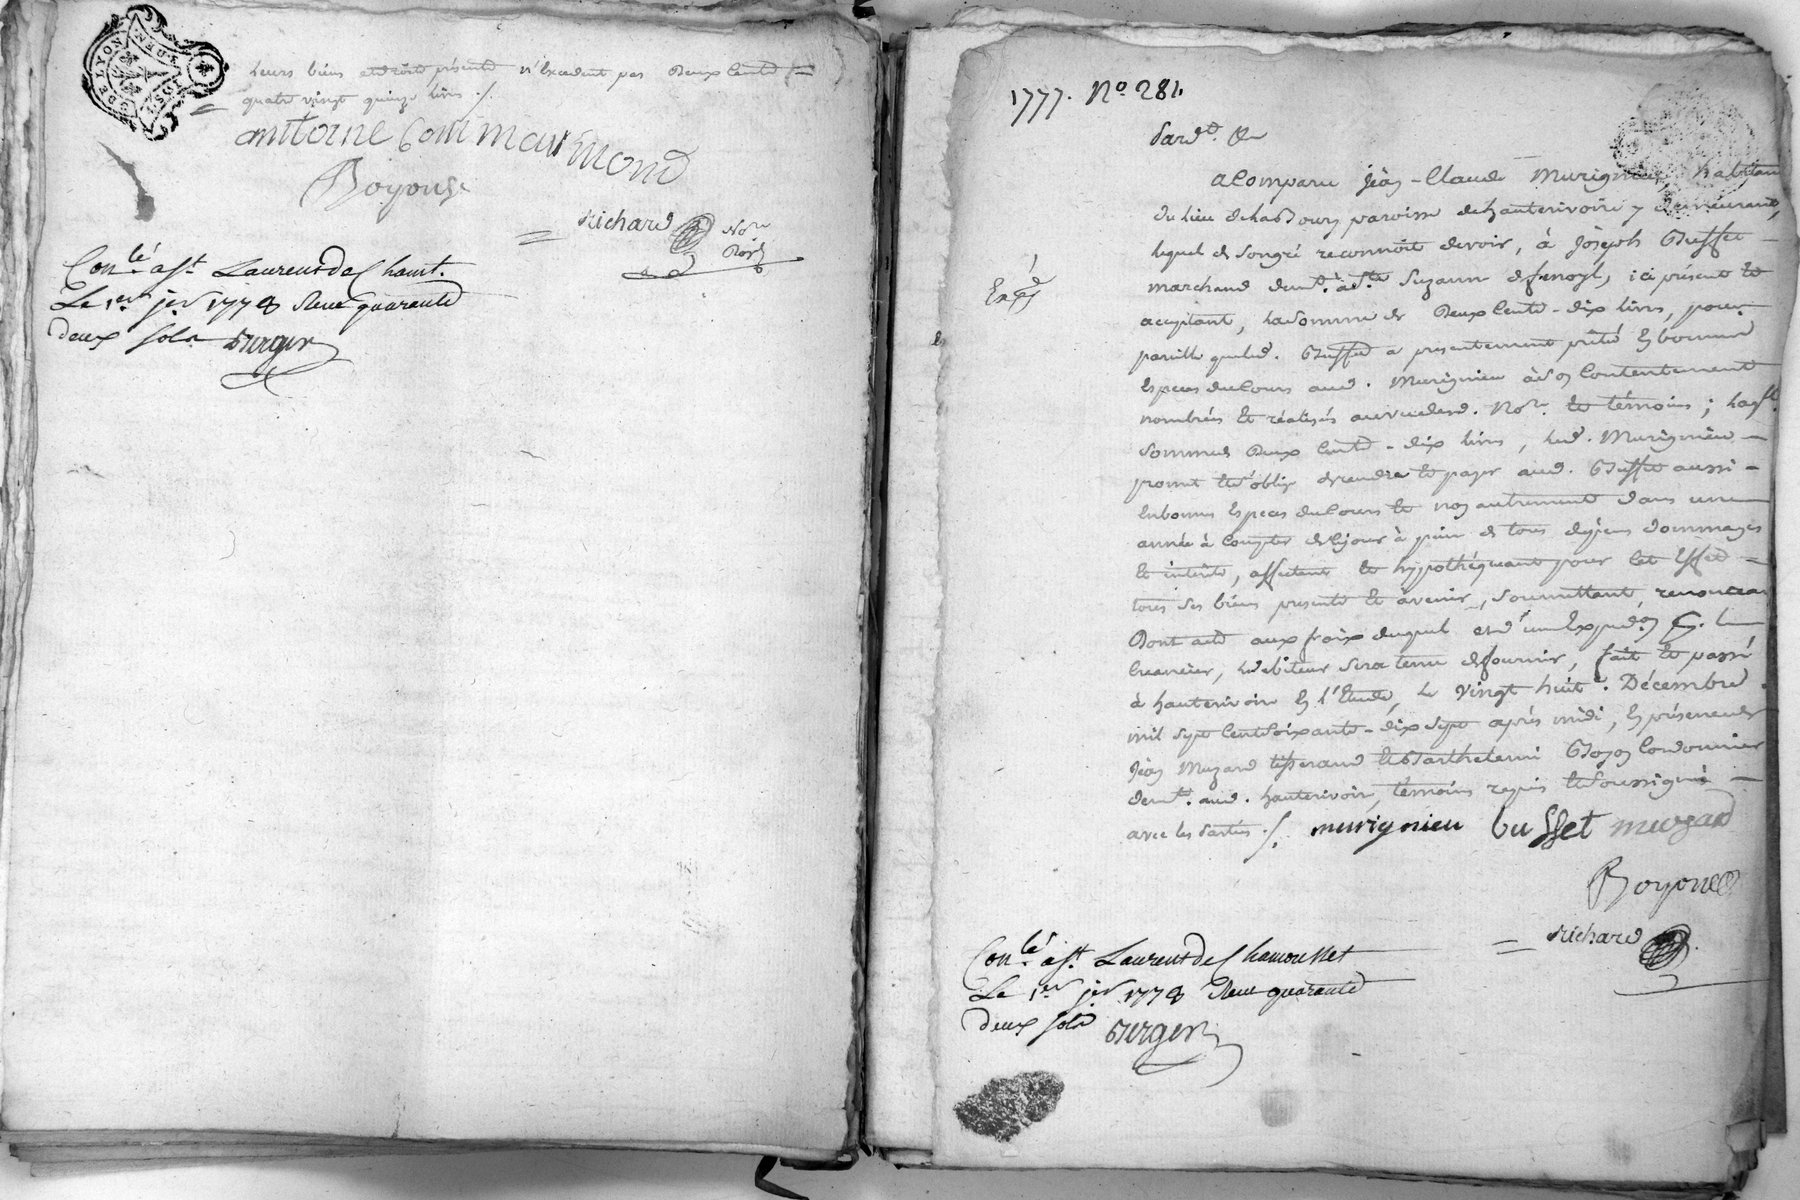 DE LYON
leurs biens et droits présents n'Excedent pas Deux Cents
quatre vingt quinze livres ./.
anttoine Commarmond
Boyonse
Richard Nore Roy
Con.lé à St Laurent de Chamt.
Le 1er jer 1778 Reçu quarente
deux sols Berger
1777. No. 281
Pard.t &
a Comparu jean-Claude Murignieu habitant
du lieu de paroisse de hauterivoire y demeurant,
lequel de son gré reconnoit devoir, à joseph Busset
marchand demt. à Ste Suzanne ici présent et
acceptant, la somme de Deux Cents-dix livres, pour
pareille que led. Busset a presentement prêté En bonnes
Especes du Cours aud. Murignieu à son Contentement
nombrées Et réalisés au vu desd. Nore. et témoins ; laqlle.
Somme de Deux Cents-dix livres, led. Murignieu
promet et s'oblige de rendre et payer aud. Busset aussi
En bonnes Especes du Cours et non autrement dans une
année à Compter de Ce jour à peine de tous dépens dommages
Et intérêts, affectant et hypothéquant pour Cet Effet
tous ses biens présents Et avenir, soumettant, renonceant
Dont acte aux frais duquel et d'une Expedon. le
Creancier, le debiteur sera tenu de fournir, fait et passé
à hauterivoire En l'Etude, le vingt huit Décembre
mil sept Cent Soixante-dix sept après midi, En présence de
jean Muzard tisserand et Barthelemi Boyon Cordonnier
demts. aud. hauterivoire, témoins requis et Soussignés
avec les parties ./. murignieu busset muzard
Expé
Boyon
Richard
Con.lé à St. Laurent de Chamousset
Le 1er jer 1778 Reçu quarente
deux sols Berger